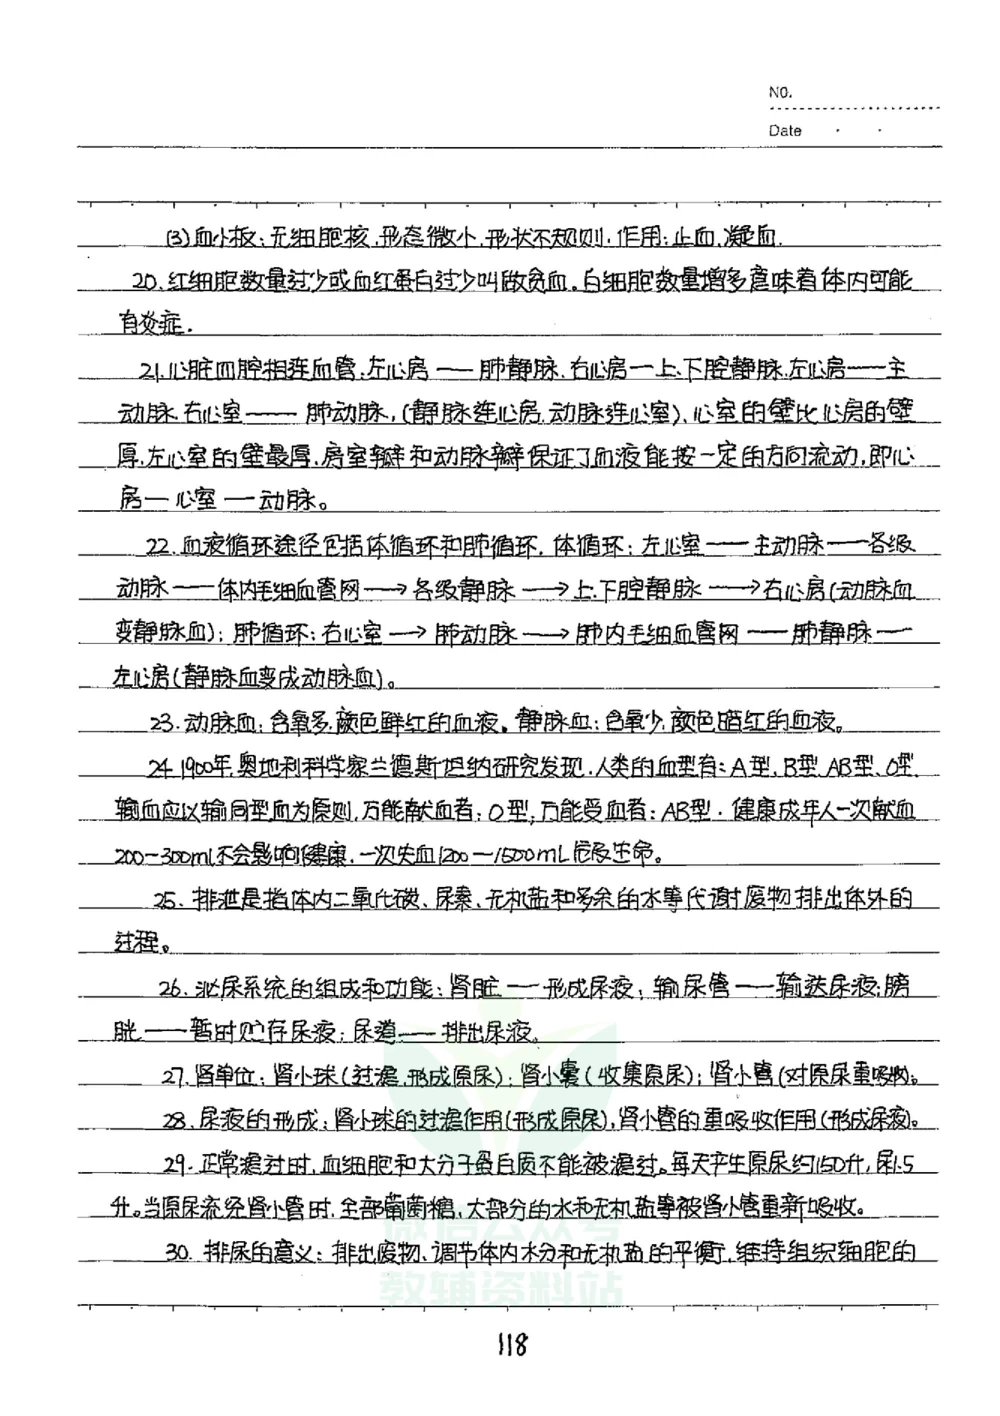 NO.
Date
(3)血小板:无细胞核,形态微小,形状不规则.作用:止血,凝血.
20.红细胞数量过少或血红蛋白过少叫做贫血。白细胞数量增多意味着体内可能
有炎症.
21.心脏四腔相连血管:左心房——肺静脉.右心房—上、下腔静脉.左心房——主
动脉.右心室——肺动脉,(静脉连心房.动脉连心室),心室的壁比心房的壁
厚.左心室的壁最厚.房室瓣和动脉瓣保证了血液能按一定的方向流动,即心
房—心室—动脉。
22.血液循环途径包括体循环和肺循环.体循环:左心室——主动脉——各级
动脉——体内毛细血管网→各级静脉→上.下腔静脉→右心房(动脉血
变静脉血);肺循环:右心室→肺动脉→肺内毛细血管网——肺静脉—
左心房(静脉血变成动脉血)。
23.动脉血:含氧多.颜色鲜红的血液。静脉血:含氧少,颜色暗红的血液。
24.1900年,奥地利科学家兰德斯坦纳研究发现.人类的血型有:A型.B型.AB型、O型.
输血应以输同型血为原则.万能献血者:O型;万能受血者:AB型.健康成年人一次献血
200-300ml不会影响健康.一次失血1200—1500mL危及生命。
25.排泄是指体内二氧化碳、尿素、无机盐和多余的水等代谢废物排出体外的
过程。
26.泌尿系统的组成和功能:肾脏——形成尿液;输尿管——输送尿液;膀
胱——暂时贮存尿液;尿道——排出尿液。
27.肾单位:肾小球(过滤,形成原尿);肾小囊(收集原尿);肾小管(对原尿重吸收)。
28.尿液的形成:肾小球的过滤作用(形成原尿),肾小管的重吸收作用(形成尿液)。
29.正常滤过时,血细胞和大分子蛋白质不能被滤过。每天产生原尿约150升,尿1.5
升。当原尿流经肾小管时.全部葡萄糖.大部分的水和无机盐等被肾小管重新吸收。
30.排尿的意义:排出废物、调节体内水分和无机盐的平衡,维持组织细胞的
微信公众号
教辅资料站
118